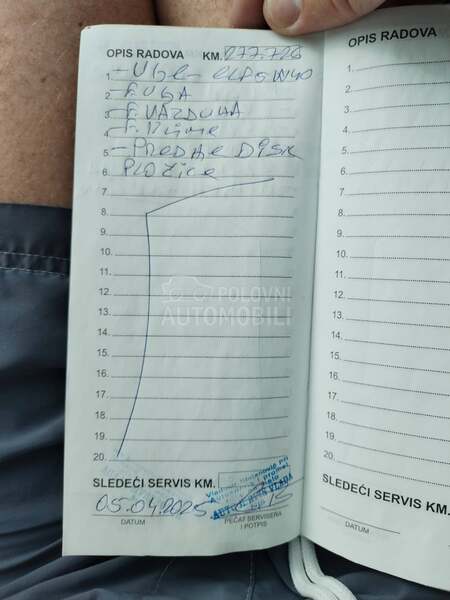 OPIS RADOVA KM. 277.726
1. - Ulje
2. F. ULJA
3. F. VAZDUHA
4. F.
5. - PREDNJE DISK
6. PLOČICE
7.
8.
9.
10.
11.
12.
13.
14.
15.
16.
17.
18.
19.
20.
SLEDEĆI SERVIS KM.
05.04.2025
DATUM
PEČAT SERVISERA
I POTPIS
POLOVNI
AUTOMOBILI
OPIS RADOVA
1.
2.
3.
4.
5.
6.
7.
8.
9.
10.
11.
12.
13.
14.
15.
16.
17.
18.
19.
20.
SLEDEĆI SERVIS KM.
DATUM